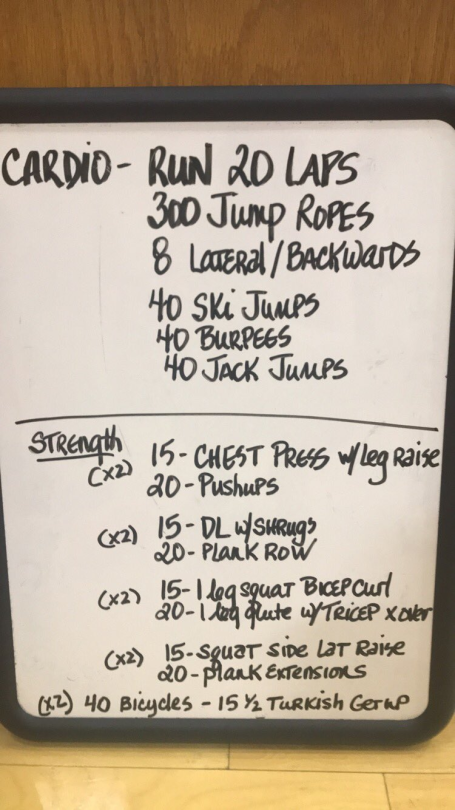 CARDIO - RUN 20 LAPS
300 Jump ROPES
8 LATERal/BACKWARDS
40 SKi JUMPS
40 BURPEES
40 JACK JUMPS
STRength
(x2) 15- CHEST PRESS w/Leg RAISE
20- PUSHUPS
(x2) 15- DL w/SHRUgs
20- PLANK ROW
(x2) 15- 1 leg squat BICEP CURl
20- 1 leg glute w/TRICEP X over
(x2) 15- squat side LAT RAISE
20- plank EXTENSIONS
(x2) 40 Bicycles - 15 ½ TURKISH GET UP